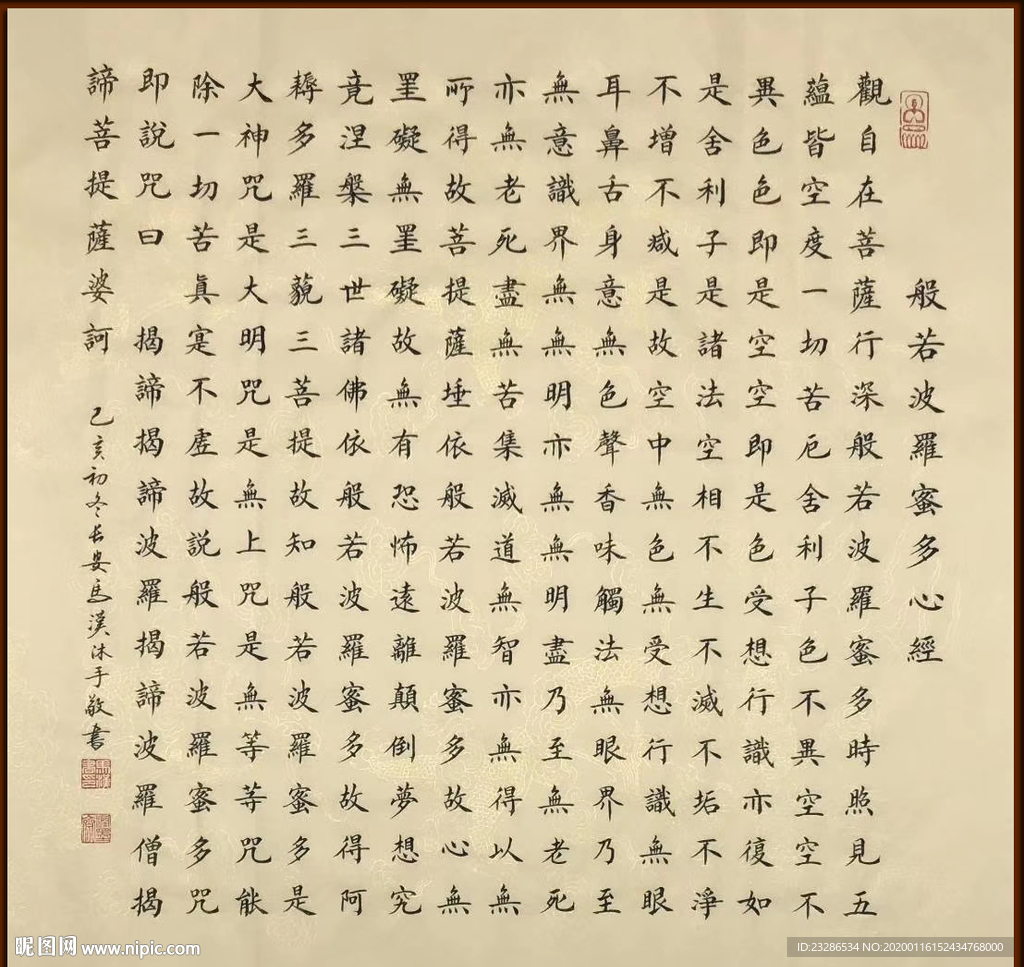 般若波羅蜜多心經
觀自在菩薩行深般若波羅蜜多時照見五
蘊皆空度一切苦厄舍利子色不異空空不
異色色即是空空即是色受想行識亦復如
是舍利子是諸法空相不生不滅不垢不淨
不增不減是故空中無色無受想行識無眼
耳鼻舌身意無色聲香味觸法無眼界乃至
無意識界無無明亦無無明盡乃至無老死
亦無老死盡無苦集滅道無智亦無得以無
所得故菩提薩埵依般若波羅蜜多故心無
罣礙無罣礙故無有恐怖遠離顛倒夢想究
竟涅槃三世諸佛依般若波羅蜜多故得阿
耨多羅三藐三菩提故知般若波羅蜜多是
大神咒是大明咒是無上咒是無等等咒能
除一切苦真寔不虛故說般若波羅蜜多咒
即說咒曰 揭諦揭諦波羅揭諦波羅僧揭
諦菩提薩婆訶
己亥初冬長安馬漢沐手敬書
昵图网 www.nipic.com
ID:23286534 NO:20200116152434768000